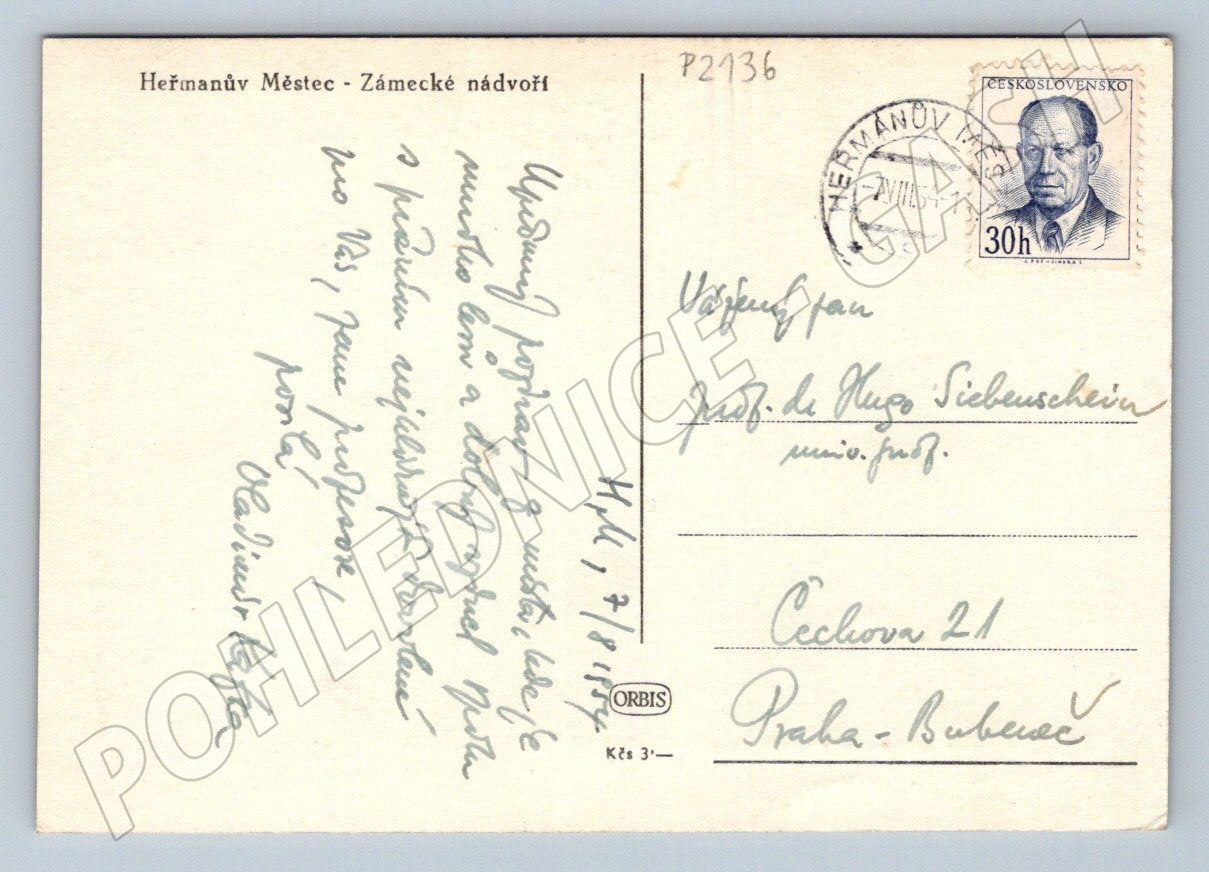 Heřmanův Městec - Zámecké nádvoří
P2136
ČESKOSLOVENSKO
30h
HEŘMANŮV MĚST
-7.VIII.54-1
H.M., 7/8 1954.
Upřímný pozdrav z místa, kde je
mnoho lesů a dobrý vzduch spolu
s přáním nejlepšího zdraví
pro Vás, pane profesore,
posílá
Vladimír
Vážený pan
prof. dr Hugo Siebenschein
univ. prof.
Čechova 21
Praha - Bubeneč
ORBIS
Kčs 3'—
POHLEDNICE - CASH